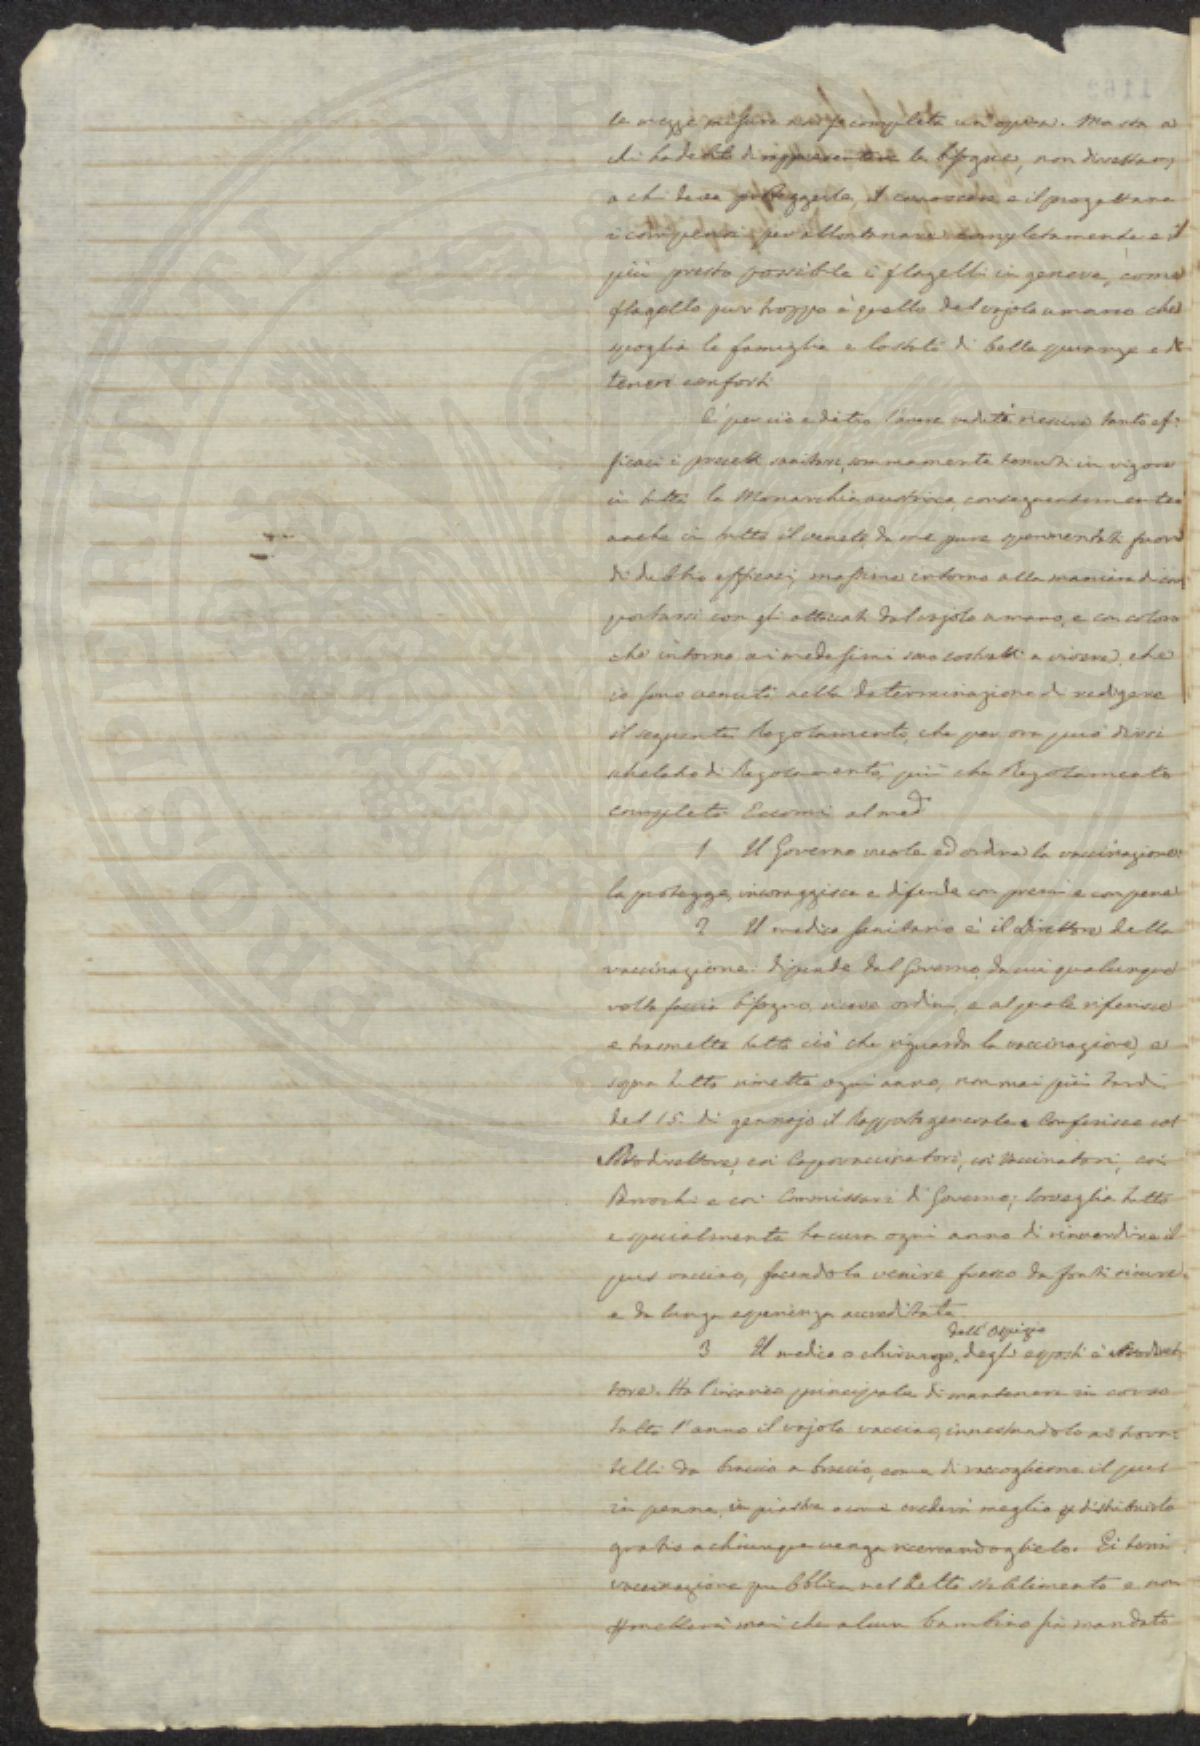 le mezze misure non si completa un'opera. Ma sta a
chi ha debito di rappresentare le bisogne, non direttam,
a chi deve proteggerle, il conoscere e il progettare
i compensi per allontanare completamente e il
più presto possibile i flagelli in genere, come
flagello pur troppo è quello del vajolo umano che
spoglia le famiglie e lo stato di belle speranze e di
teneri conforti
È per ciò e dietro l'avere veduti riescire tanto ef:
ficaci i precetti sanitarj, sommamente tenuti in vigore
in tutta la Monarchia austriaca, conseguentemente
anche in tutto il veneto, da me pure sperimentati fuori
di dubbio efficaci, massime intorno alla maniera di com
portarsi con gli attaccati dal vajolo umano, e con coloro
che intorno ai medesimi sono costretti a vivere, che
io sono venuto nella determinazione di redigere
il seguente Regolamento, che per ora può dirsi
scheletro di Regolamento, più che Regolamento
completo. Eccomi al med
1 Il Governo vuole ed ordina la vaccinazione:
la protegge, incoraggisce e difende con premi e con pene
2 Il medico Sanitario è il Direttore della
vaccinazione: dipende dal Governo, da cui qualunque
volta faccia bisogno, riceve ordini, e al quale riferisce
e trasmette tutto ciò che riguarda la vaccinazione, e
sopra tutto rimette ogni anno, non mai più tardi
del 15. di gennajo il Rapporto generale. Conferisce col
Vicedirettore, coi Capovaccinatori, coi Vaccinatori, coi
Parrochi e coi Commissari di Governo; sorveglia tutto
e specialmente ha cura ogni anno di rinverdire il
pus vaccino, facendolo venire fresco da fonti sicure
e da lunga esperienza accreditate
dell'Ospizio
3 Il medico o chirurgo degli esposti è Vicediret
tore. Ha l'incarico principale di mantenere in corso
tutto l'anno il vajolo vaccino, innestandolo ai trova
telli da braccio a braccio, come di raccogliere il pus
in penne, in piastre o come crederà meglio e distribuirlo
gratis a chiunque venga ricercandoglielo. Ei terrà
vaccinazione pubblica nel detto stabilimento e non
ometterà mai che alcun bambino sia mandato